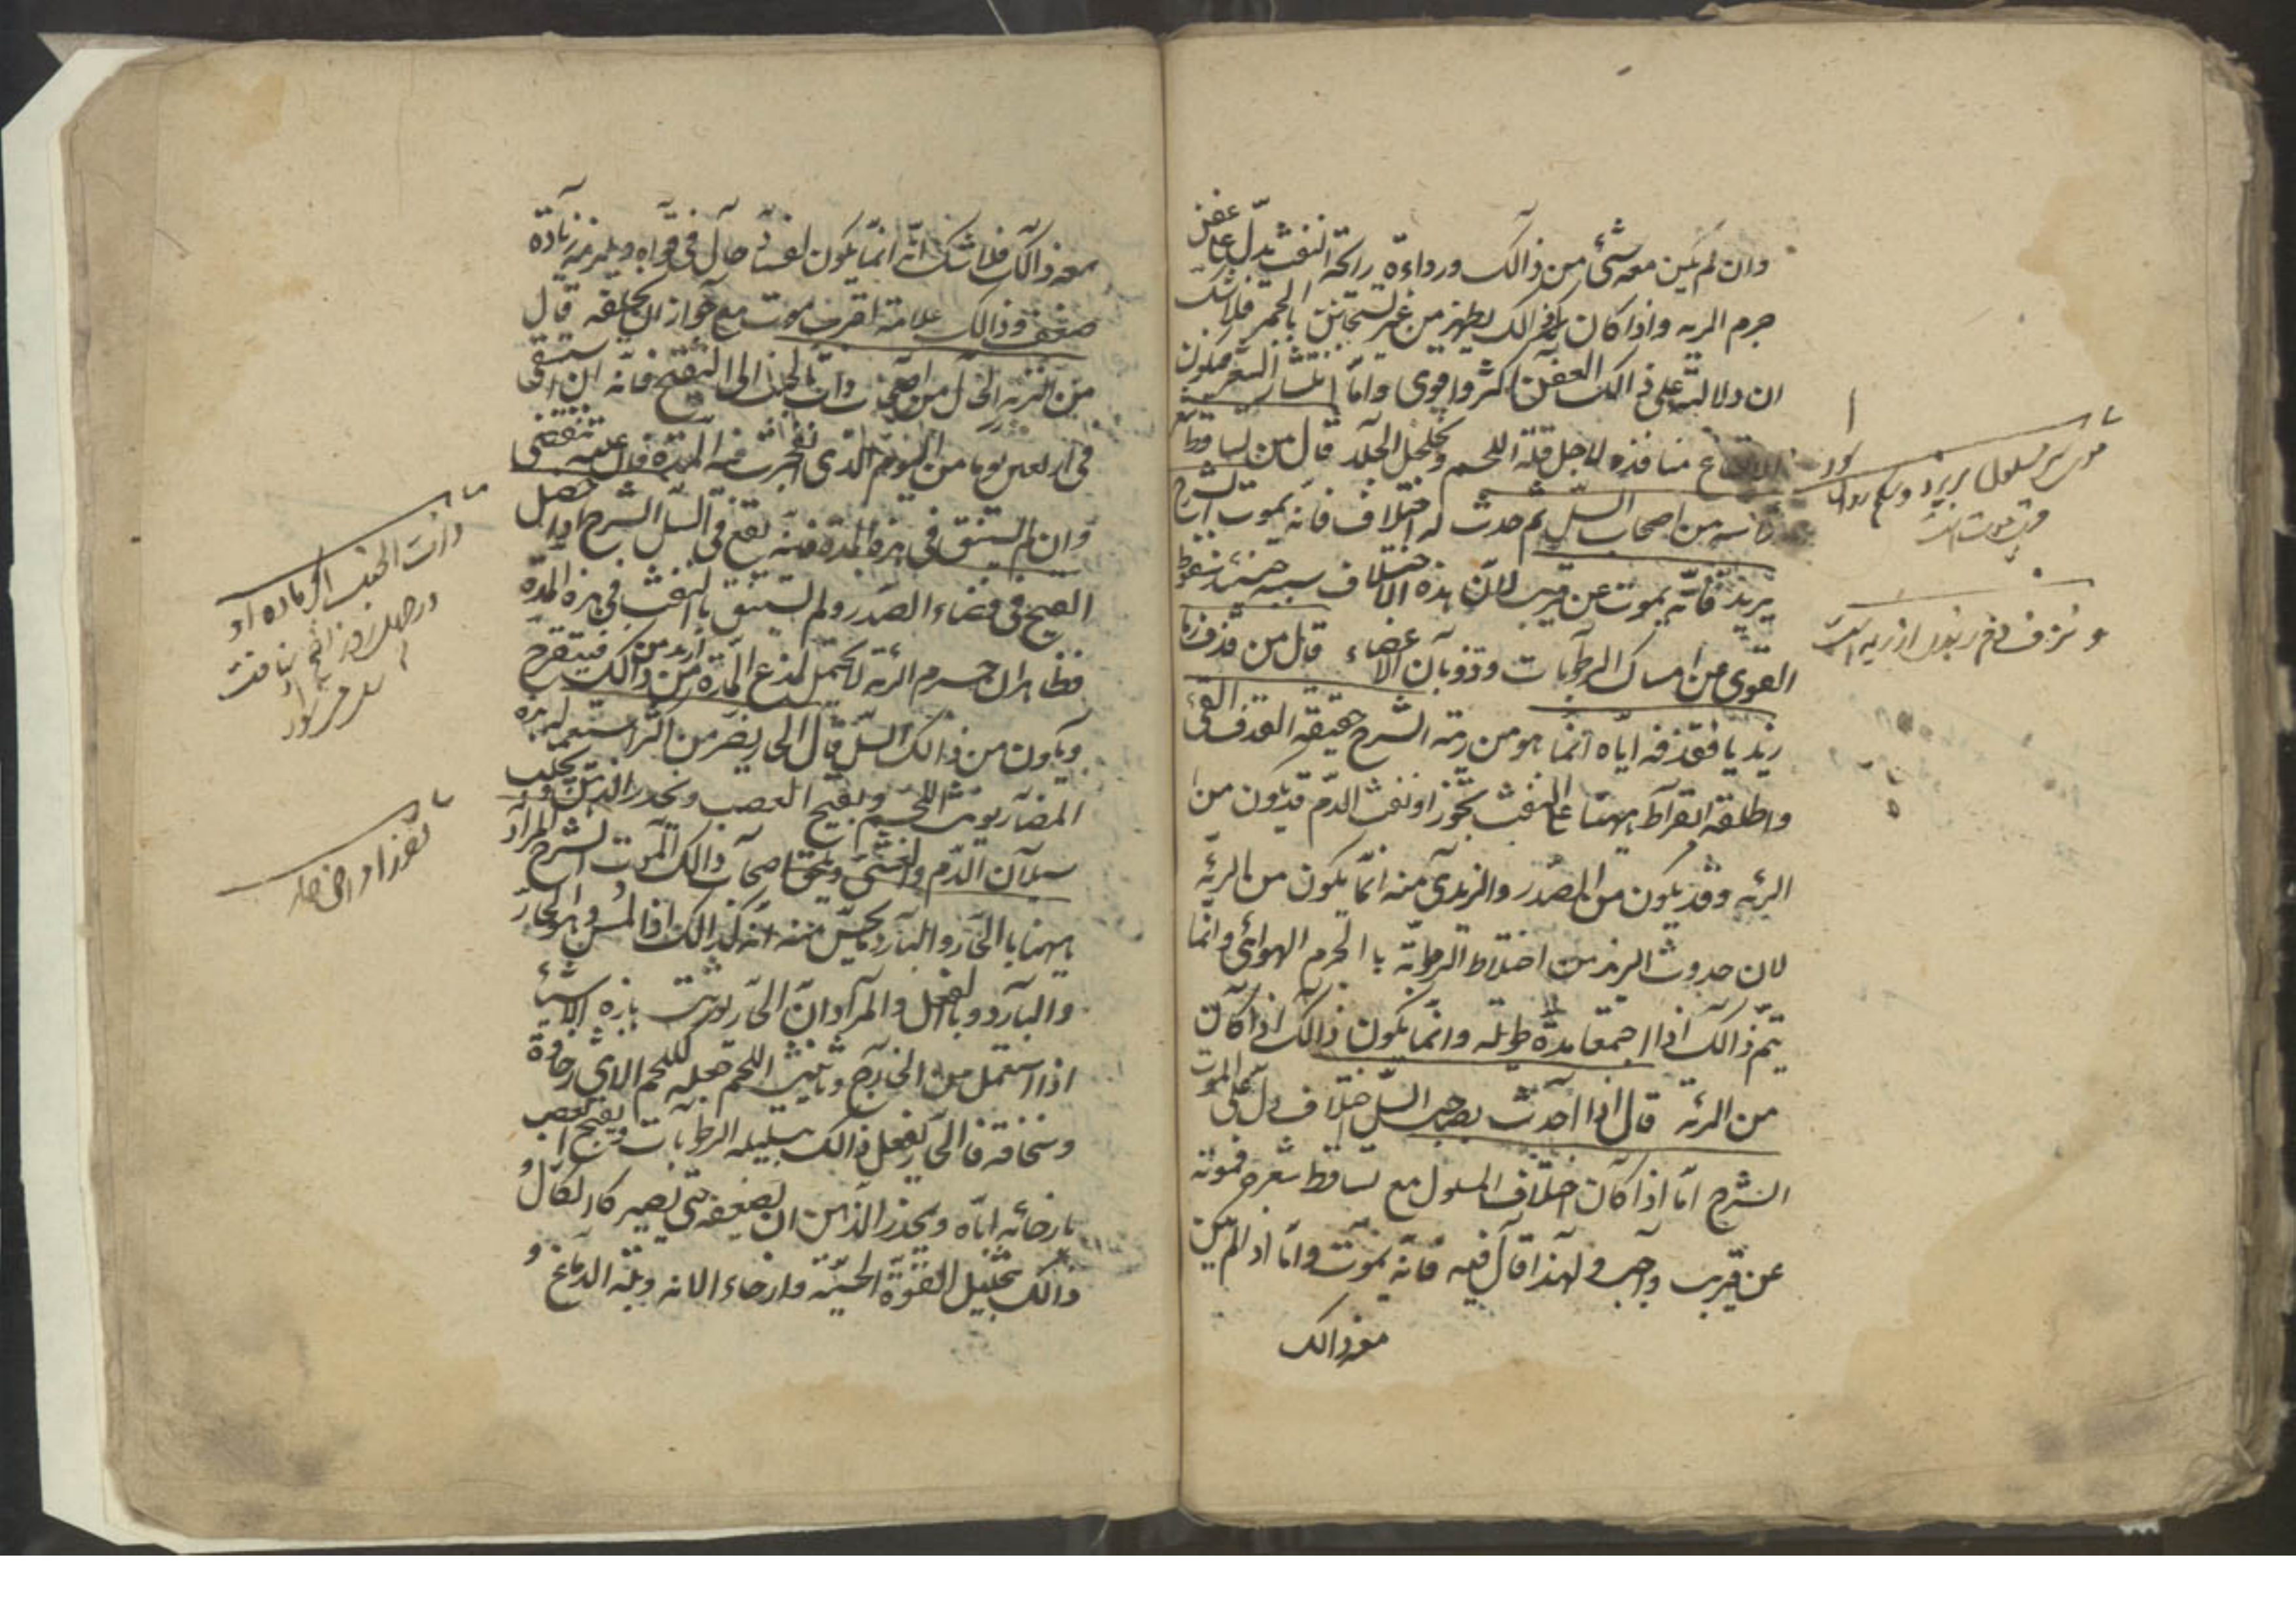 وان لم يكن معه شئ من ذالك ورداءة رائحة النفث يدل على عفن
جرم الريه واذا كان ذالك يظهر من غير تسخين بالجمر فلا شك
ان دلالته على ذالك العفن اكثر واقوى واما انتشار الشعر فيكون
لاتساع منافذه لاجل قلة اللحم وتخلخل الجلد قال من تساقط شعر
راسه من اصحاب السل ثم حدث له اختلاف فانه يموت الشرح
يريد فانه يموت عن قريب لان هذه الاختلاف سببه حينئذ سقوط
القوى عن امساك الرطوبات وذوبان الاعضاء قال من قذف دما
زبديا فقذفه اياه انما هو من ريته الشرح حقيقة القذف القئ
واطلقه ابقراط ههنا على النفث تجوزا ونفث الدم قد يكون من
الريه وقد يكون من الصدر والزبدى منه انما يكون من الريه
لان حدوث الزبد من اختلاط الرطوبة بالجرم الهوائى وانما
يتم ذالك اذا اجتمعا مدة طويله وانما يكون ذالك اذا كان
من الريه قال اذا حدث بصاحب السل اختلاف دل على الموت
الشرح اما اذا كان اختلاف المسلول مع تساقط شعره فموته
عن قريب واجب ولهذا قال فيه فانه يموت واما اذا لم يكن
معه ذالك
موى سر مسلول بريزد
معه ذالك فلا شك انه انما يكون لفساد حال فى قواه ويلزمه زيادة
ضعف وذالك علامة لقرب موت مع جواز ان يخلفه قال
من الت به الحال من اصحاب ذات الجنب الى التقيح فانه ان استنقى
فى اربعين يوما من اليوم الذى انفجرت فيه المدة فان علته تنقضى
وان لم يستنق فى هذه المدة فانه يقع فى السل الشرح اذا حصل
القيح فى فضاء الصدر ولم يستنق بالنفث فى هذه المدة
فظاهر ان جرم الريه لا يحتمل لذع المدة ازيد من ذالك فيتقرح
ويكون من ذالك السل قال الحار يضر من اكثر استعماله هذه
المضار يونث اللحم ويفتح العصب ويخدر الذهن ويجلب
سيلان الدم والغشى ويلحق اصحاب ذالك الموت الشرح المراد
ههنا بالحار والبارد ما يحس منه انه كذالك اذا لمس وهو الحار
والبارد بالفعل والمراد ان الحار يورث هذه الاشياء
اذا استعمل من الخارج وتانيث اللحم جعله كلحم الاناث رخاوة
وسخافة فالحار يفعل ذالك بتسييله الرطوبات ويفتح العصب
بارخائه اياه ويخدر الذهن ان يضعفه حتى يصير كالكال و
ذالك بتحليل القوة الحسية وارخاء الالة وبلة الدماغ و
ذات الجنب